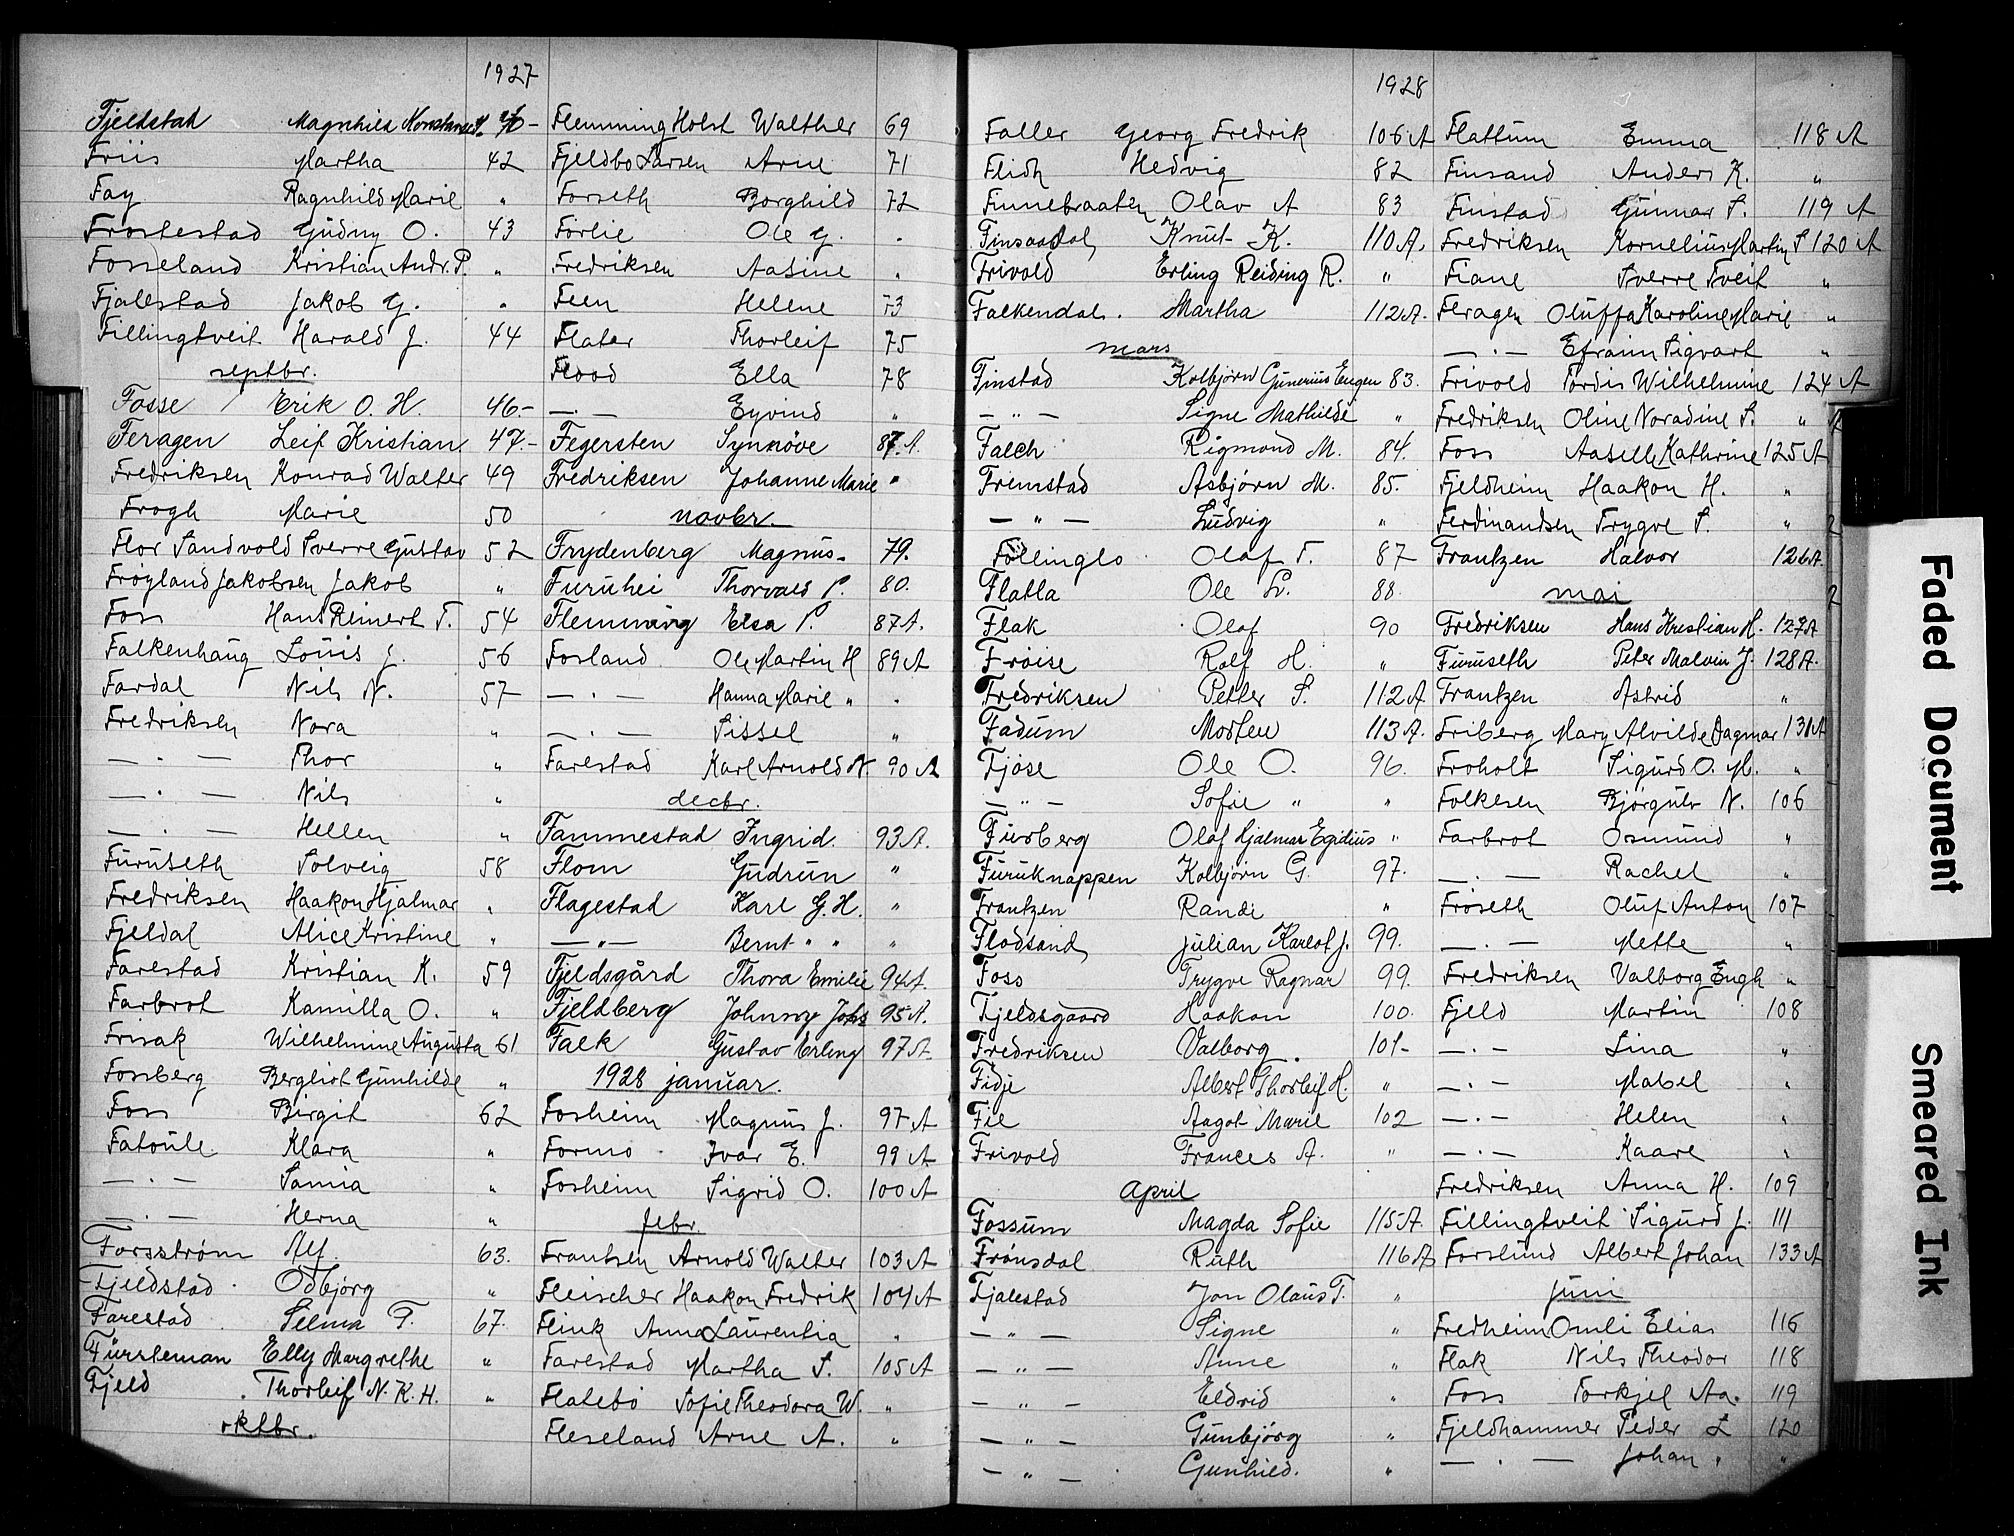 1927
Fjeldstad Magnhild Konstanse
Friis Martha 42
Fay Ragnhild Marie "
Frostestad Gudny O. 43
Fosseland Kristian Andr. P. "
Fjalestad Jakob G. "
Fillingtveit Harald J. 44
septbr.
Fosse Erik O. H. 46-
Feragen Leif Kristian 47-
Fredriksen Konrad Walter 49
Frogh Marie 50
Flor Sandvold Sverre Gustav 52
Frøyland Jakobsen Jakob "
Foss Hans Reinert T. 54
Falkenhaug Louis J. 56
Fardal Nils N. 57
Fredriksen Nora "
— . — Thor "
— . — Nils "
— . — Hellen "
Furuseth Solveig 58
Fredriksen Haakon Hjalmar "
Fjeldal Alice Kristine "
Farestad Kristian K. 59
Farbrot Kamilla O. "
Frisak Wilhelmine Augusta 61
Fossberg Bergliot Gunhilde "
Foss Birgit 62
Fatoule Klara "
— . — Samia "
— . — Herna "
Forsstrøm Alf. 63.
Fjeldstad Odbjørg "
Farestad Selma T. 67.
Fürsteman Elly Margrethe "
Fjeld Thorleif N. K. H. "
oktbr.
Flemming Holst Walther 69
Fjeldbo Larsen Arne 71
Forseth Borghild 72
Förlie Ole G. "
Fredriksen Aasine "
Feen Helene 73
Flater Thorleif 75
Flood Ella 78
— . — Eyvind "
Fegersten Synnöve 87.A.
Fredriksen Johanne Marie "
novbr.
Frydenberg Magnus 79.
Furuhei Thorvald P. 80.
Flemming Elsa P. 87A.
Fosland Ole Martin H 89A
— . — Hanna Marie " "
— . — Sissel "
Farestad Karl Arnold N. 90 A
decbr.
Tammestad Ingrid 93A.
Flom Gudrun "
Flagestad Karl G. H. "
— " — Bernt " " "
Fjeldsgård Thora Emilie 94A.
Fjeldberg Johnny Johs 95A.
Falk Gustav Erling 97A
1928 januar.
Fosheim Magnus J. 97 A
Formo Ivar E. 99 A
Fosheim Sigrid O. 100 A
febr.
Frantsen Arnold Walter 103 A
Fleischer Haakon Fredrik 104 A
Flink Anna Laurentia "
Farestad Martha S. 105 A
Flatebö Sofie Theodora W. "
Fleseland Arne A. "
1928
Faller Georg Fredrik 106 A
Flidh Hedvig 82
Finnebraaten Olav A 83
Finsaadal Knut K. 110 A.
Frivold Erling Reiding R. "
Falkendal Martha 112 A.
mars
Finstad Kolbjørn Gunerius Eugen 83.
— " — Signe Mathilde "
Falch Rigmond M. 84.
Fremstad Asbjørn M. 85.
— " — Ludvig "
Föllinglo Olaf T. 87
Flatla Ole L. 88.
Flak Olaf 90
Frøise Rolf H. "
Fredriksen Petter S. 112 A
Fadum Morten 113 A.
Fjøse Ole O. 96.
— " — Sofie " "
Furberg Olaf Hjalmar Egidius "
Furuknappen Kolbjørn G. 97.
Frantzen Randi "
Flodsand Julian Karlot J. 99.
Foss Trygve Ragnar 99.
Fjeldsgaard Haakon 100.
Fredriksen Valborg. 101-
Fidje Albert Thorleif H. "
Fie Aagot Marie 102
Frivold Frances A. "
April
Fossum Magda Sofie 115 A.
Frønsdal Ruth 116 A
Fjalestad Jon Olaus T. "
— " — Signe "
— " — Anne "
— " — Eldrid "
— " — Gunbjørg "
— " — Gunhild. "
Flattum Emma 118 A
Finsand Anders K. "
Finstad Gunnar S. 119 A
Fredriksen Kornelius Martin S 120 A
Fiane Sverre Tveit "
Feragen Oluffa Karoline Marie "
— . — Efraim Sigvart "
Frivold Tordis Wilhelmine 124 A
Fredriksen Oline Noradine S. " A
Foss Aaselle Kathrine 125 A
Fjeldheim Haakon H. "
Ferdinandsen Trygve S. "
Frantzen Halvor 126A.
mai
Fredriksen Hans Kristian H. 127A
Furuseth Peter Malvin J. 128A.
Frantzen Astrid "
Friberg Mary Alvilde Dagmar 131A
Froholt Sigurd O. M. "
Folkesen Bjørgulv N. 106
Farbrot Osmund "
— . — Rachel "
Frøseth Oluf Anton 107
— . — Mette "
Fredriksen Valborg Engh "
Fjeld Martin 108
— . — Lina "
— . — Mabel "
— . — Helen "
— . — Kaare "
Fredriksen Anna H. 109
Fillingtveit Sigurd J. 111
Forslund Albert Johan 133 A
juni
Fredheim Omli Elias 116
Flak Nils Theodor 118
Foss Torkjel Aa. 119
Fjeldhammer Peder L 120
— . — Johan " "
Faded Document
Smeared Ink